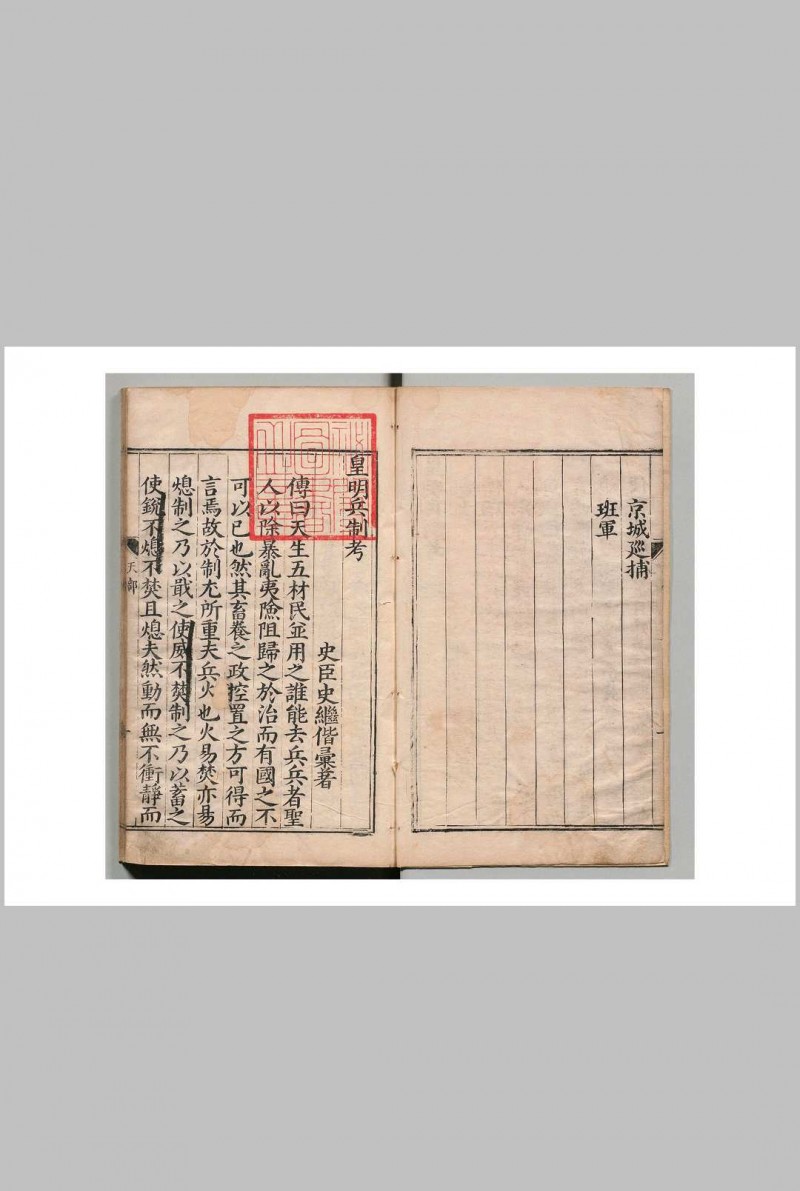 京城廵捕
班軍
皇明兵制考
史臣史繼偕彙著
傳曰天生五材民並用之誰能去兵兵者聖
人以除暴亂夷險阻歸之於治而有國之不
可以已也然其畜養之政控置之方可得而
言焉故於制尤所重夫兵火也火易焚亦易
熄制之乃以戢之使威不焚制之乃以蓄之
使銳不熄不焚且熄夫然動而無不衝靜而